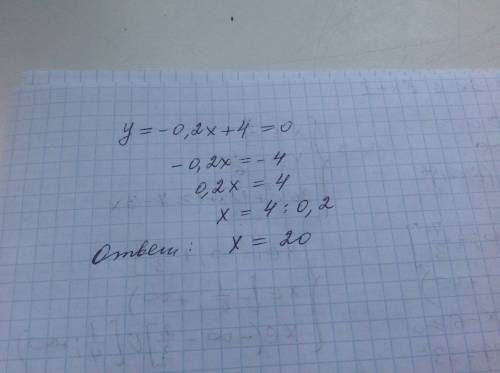 y = -0,2x + 4 = 0
-0,2x = -4
0,2x = 4
x = 4 : 0,2
Ответ: x = 20